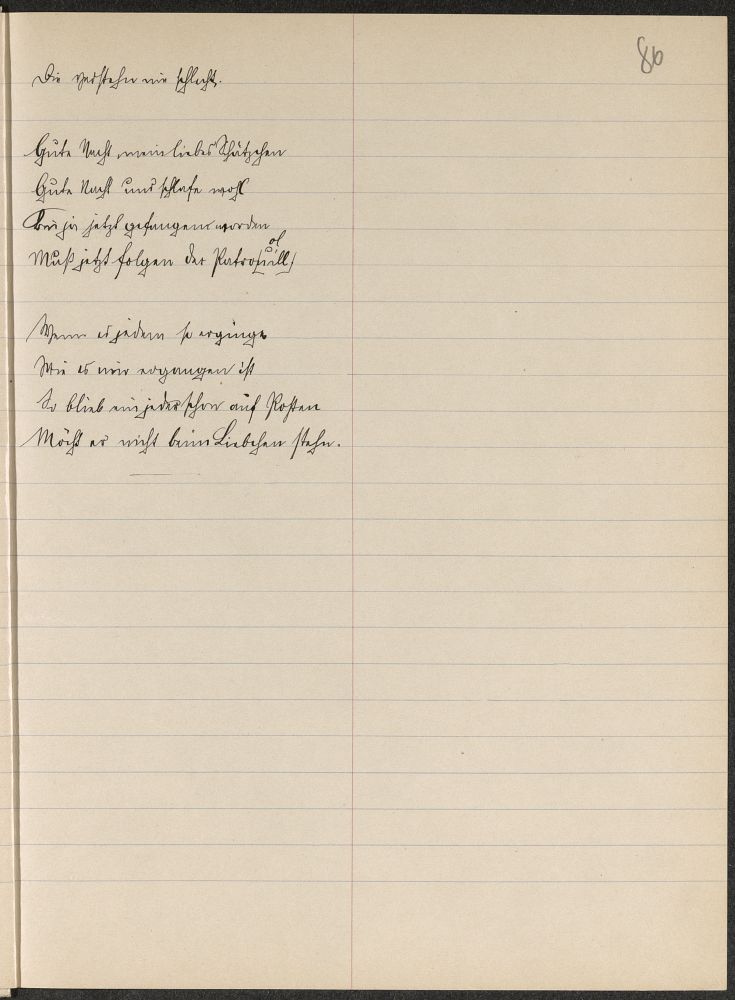 86
Die verstehn nie schlecht.
Gute Nacht, mein liebes Schätzchen
Gute Nacht und schlafe wohl
Bin ja jetzt gefangen worden
Muß jetzt folgen der Patro(uill)
ol
Wenn es jedem so erginge
Wie es mir ergangen ist
So blieb ein jeder schon auf Posten
Möcht er nicht beim Liebchen stehn.